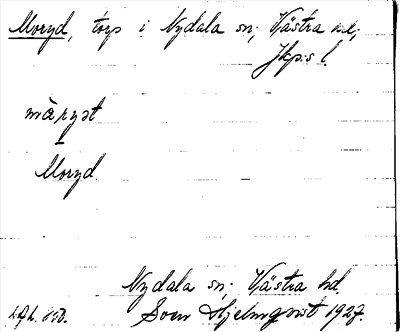 Moryd, torp i Nydala sn; Västra hd;
Jkp:s l.
Moryd.
Nydala sn; Västra hd.
Sven Hjelmqvist 1927.